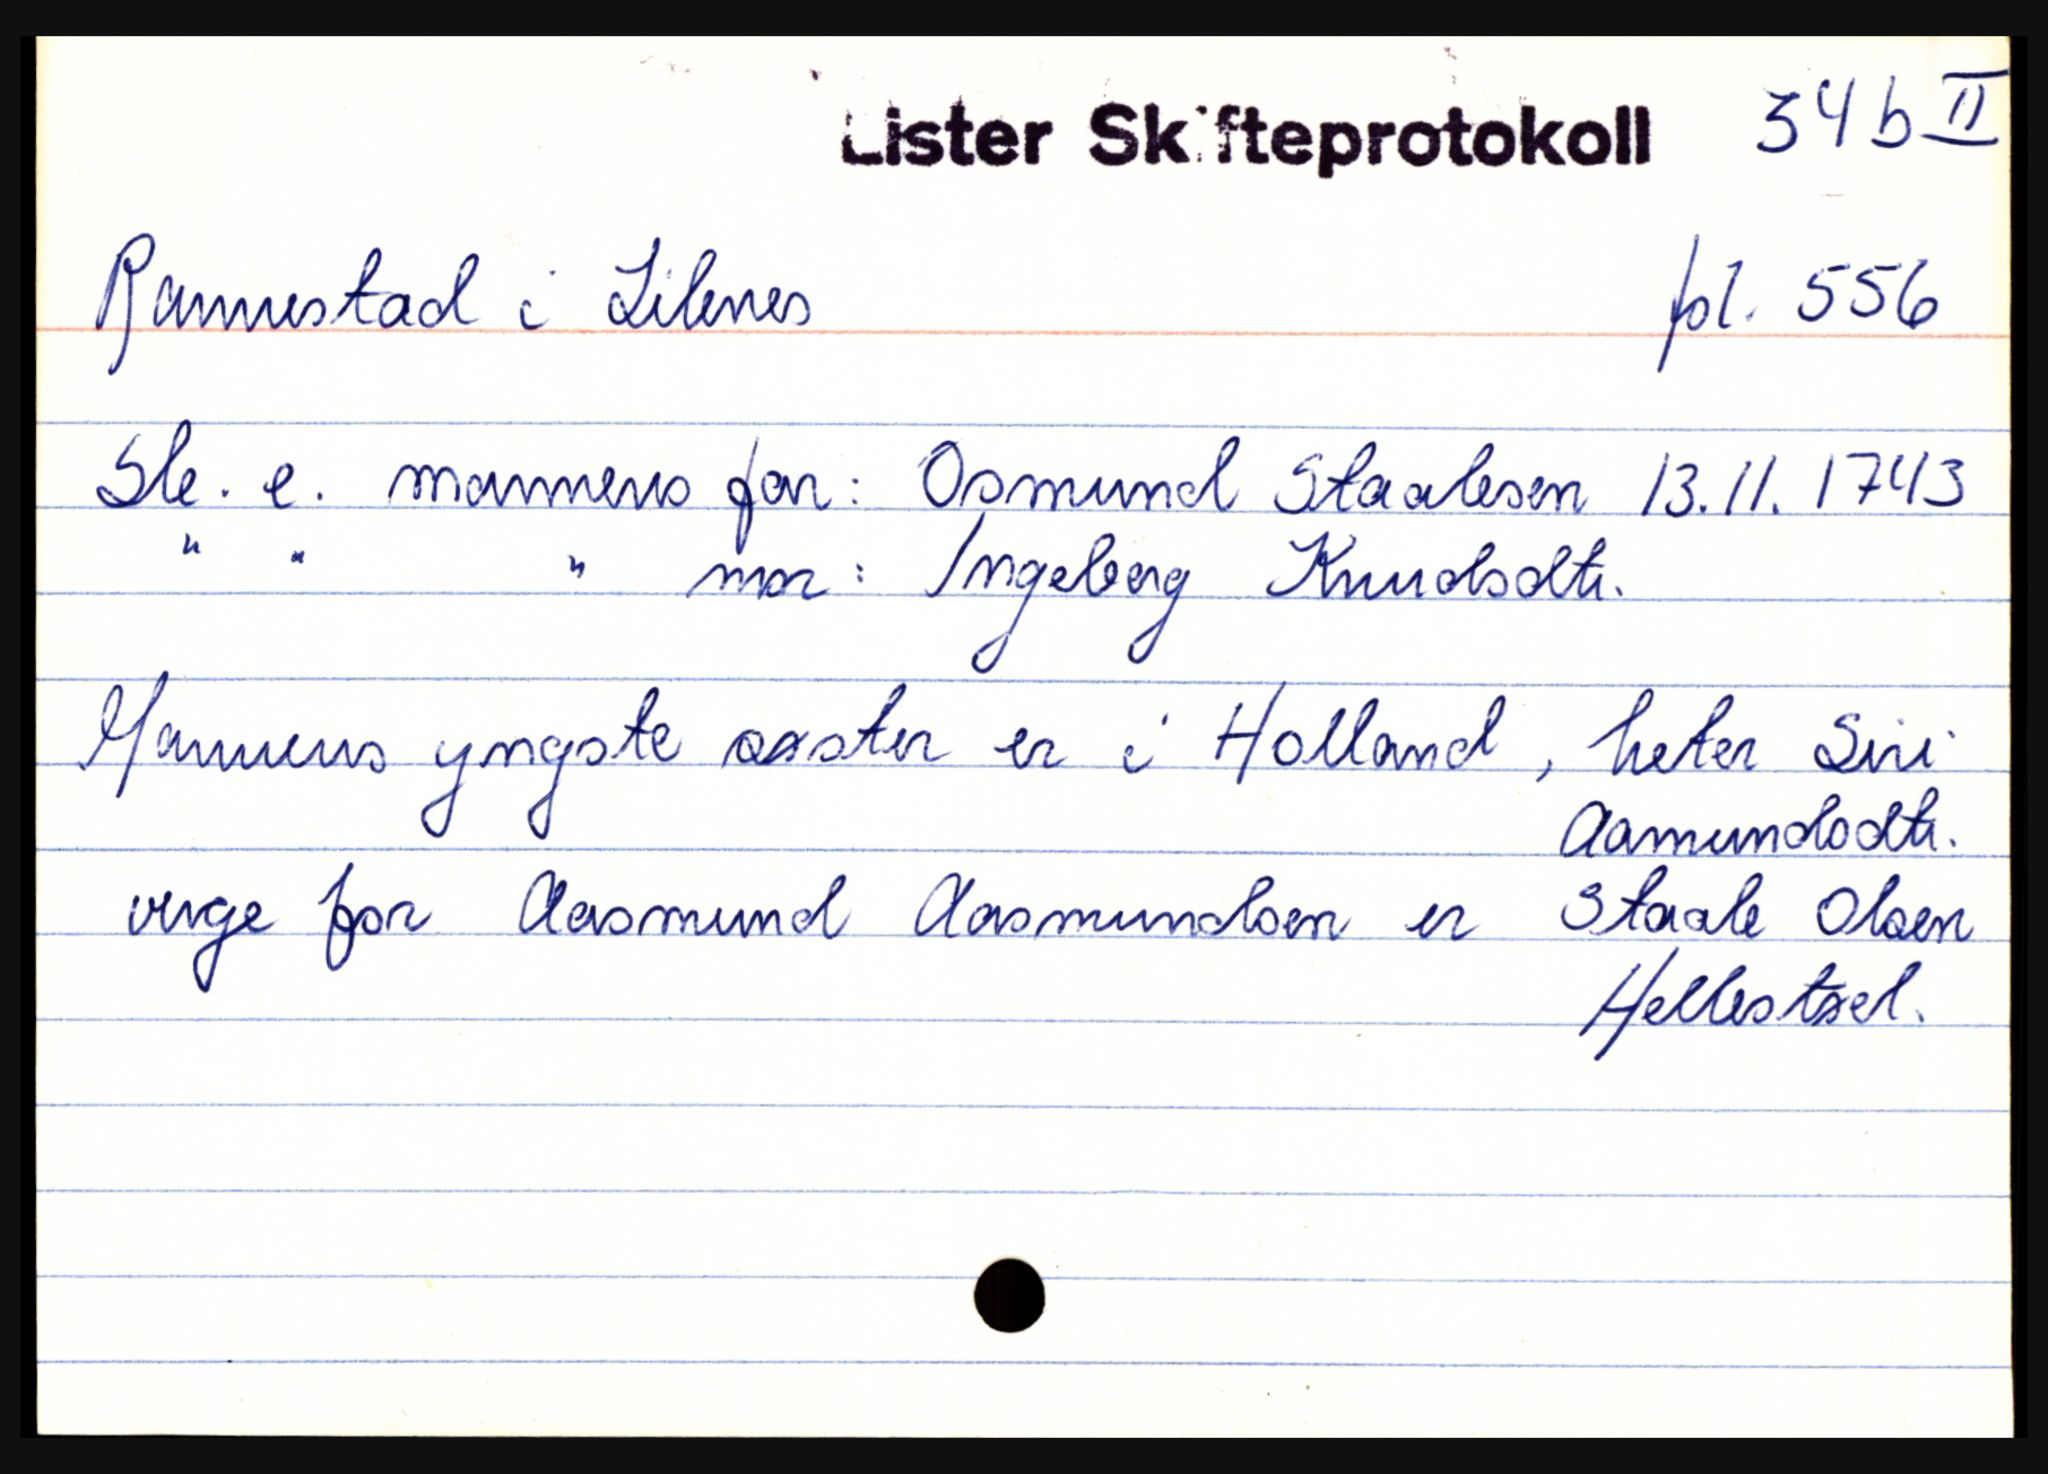 Lister Skifteprotokoll 34 b II
Rannestad i Lilenes fol. 556
Ske. e. mannens far: Osmund Staalesen 13.11.1743
" " " mor: Ingeborg Knudsdtr.
Mannens yngste søster er i Holland, heter Siri
Aamundsdtr.
verge for Aasmund Aasmundsen er Staale Olsen
Hellestøel.